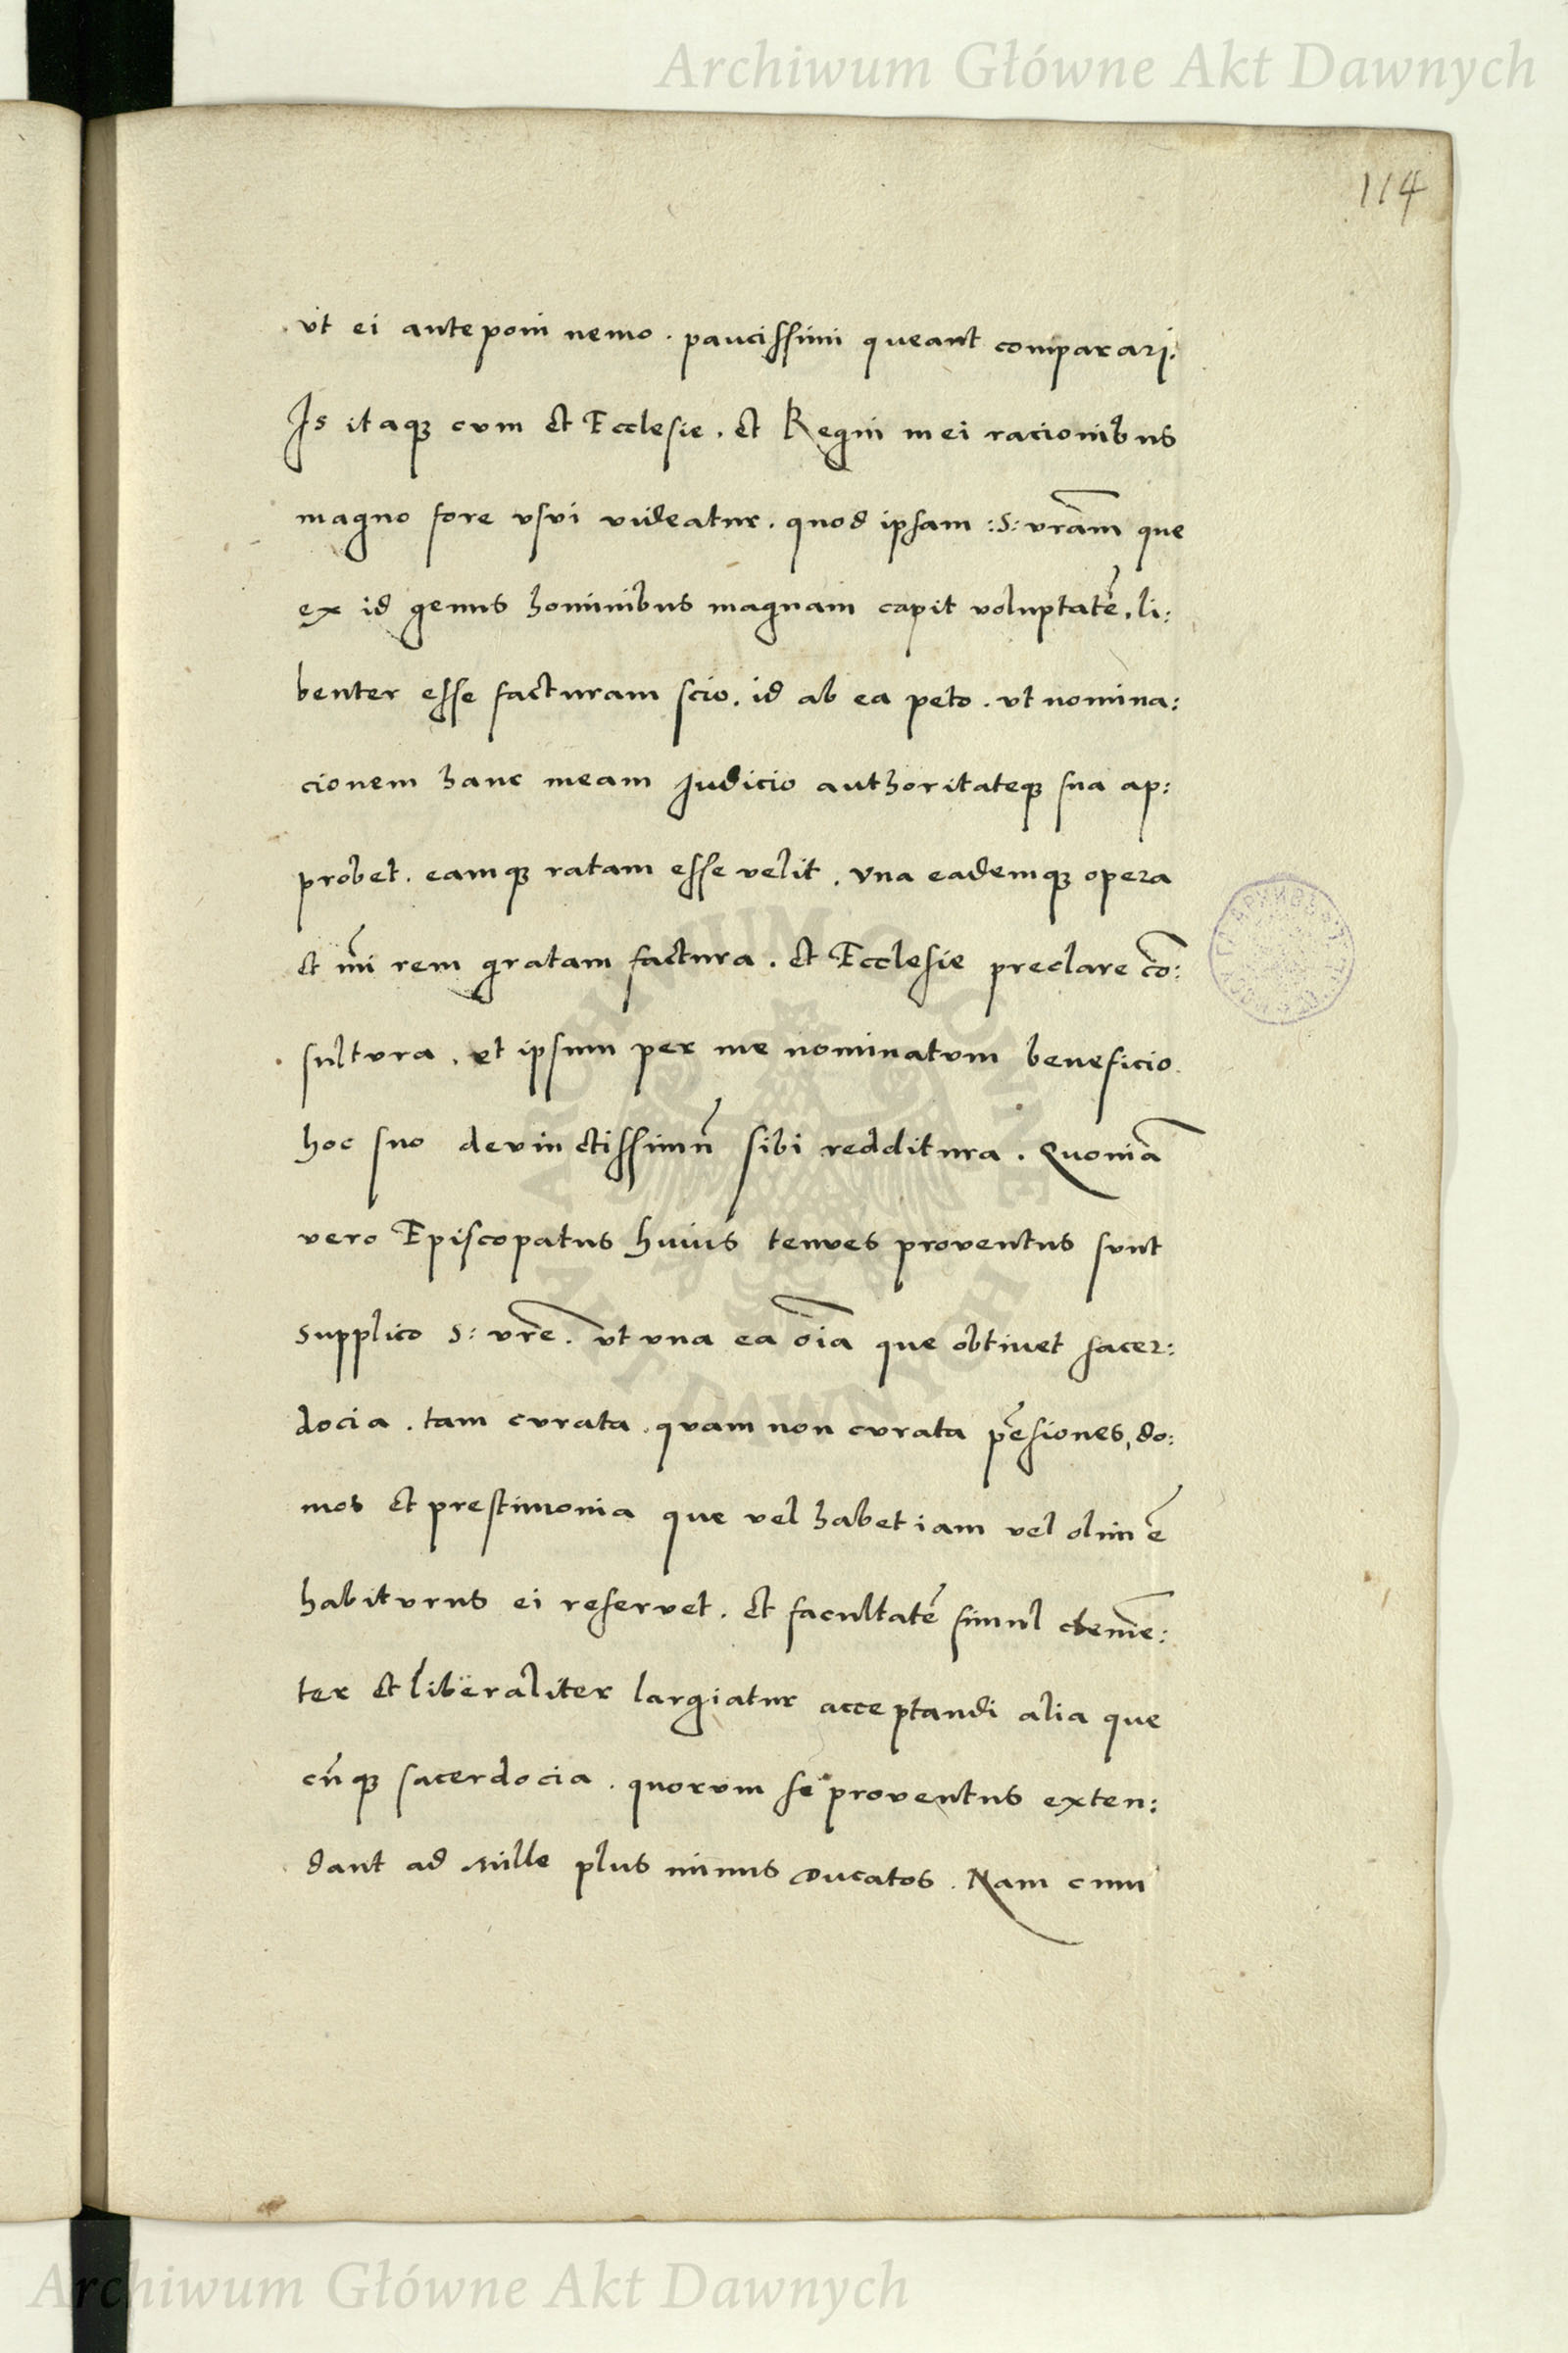 Archiwum Główne Akt Dawnych
114
vt ei anteponi nemo . paucissimi queant comparari.
Is itaqꝫ cum et Ecclesie . et Regni mei racionibus
magno fore vsui videatur . quod ipsam :S: vr̃am que
ex id genus hominibus magnam capit voluptatẽ . li:
benter esse facturam scio . id ab ea peto . vt nomina:
cionem hanc meam Judicio authoritateqꝫ sua ap:
probet . eamqꝫ ratam esse velit . Vna eademqꝫ opera
et m̃i rem gratam factura . et Ecclesie preclare cõ:
sultura . et ipsum per me nominatum beneficio
hoc suo devinctissimũ sibi redditura . Quoniã
vero Episcopatus huius tenues proventus sunt
supplico S: vr̃e . vt vna ea oĩa que obtinet sacer:
docia . tam curata . quam non curata pẽsiones, do:
mos et prestimonia que vel habet iam vel olim ẽ
habiturus ei reservet . et facultatẽ simul clemẽ:
ter et liberaliter largiatur acceptandi alia que
cũqꝫ sacerdocia . quorum se proventus exten:
dant ad Mille plus minus Ducatos . Nam cum
ARCHIWUM GŁÓWNE
AKT DAWNYCH
Archiwum Główne Akt Dawnych